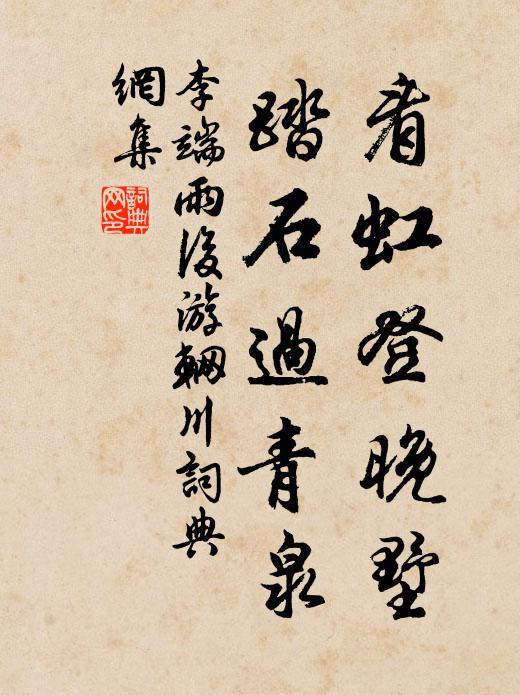 看虹登晚墅
踏石過青泉
李端雨後游輞川詞典
網集
詞典網印